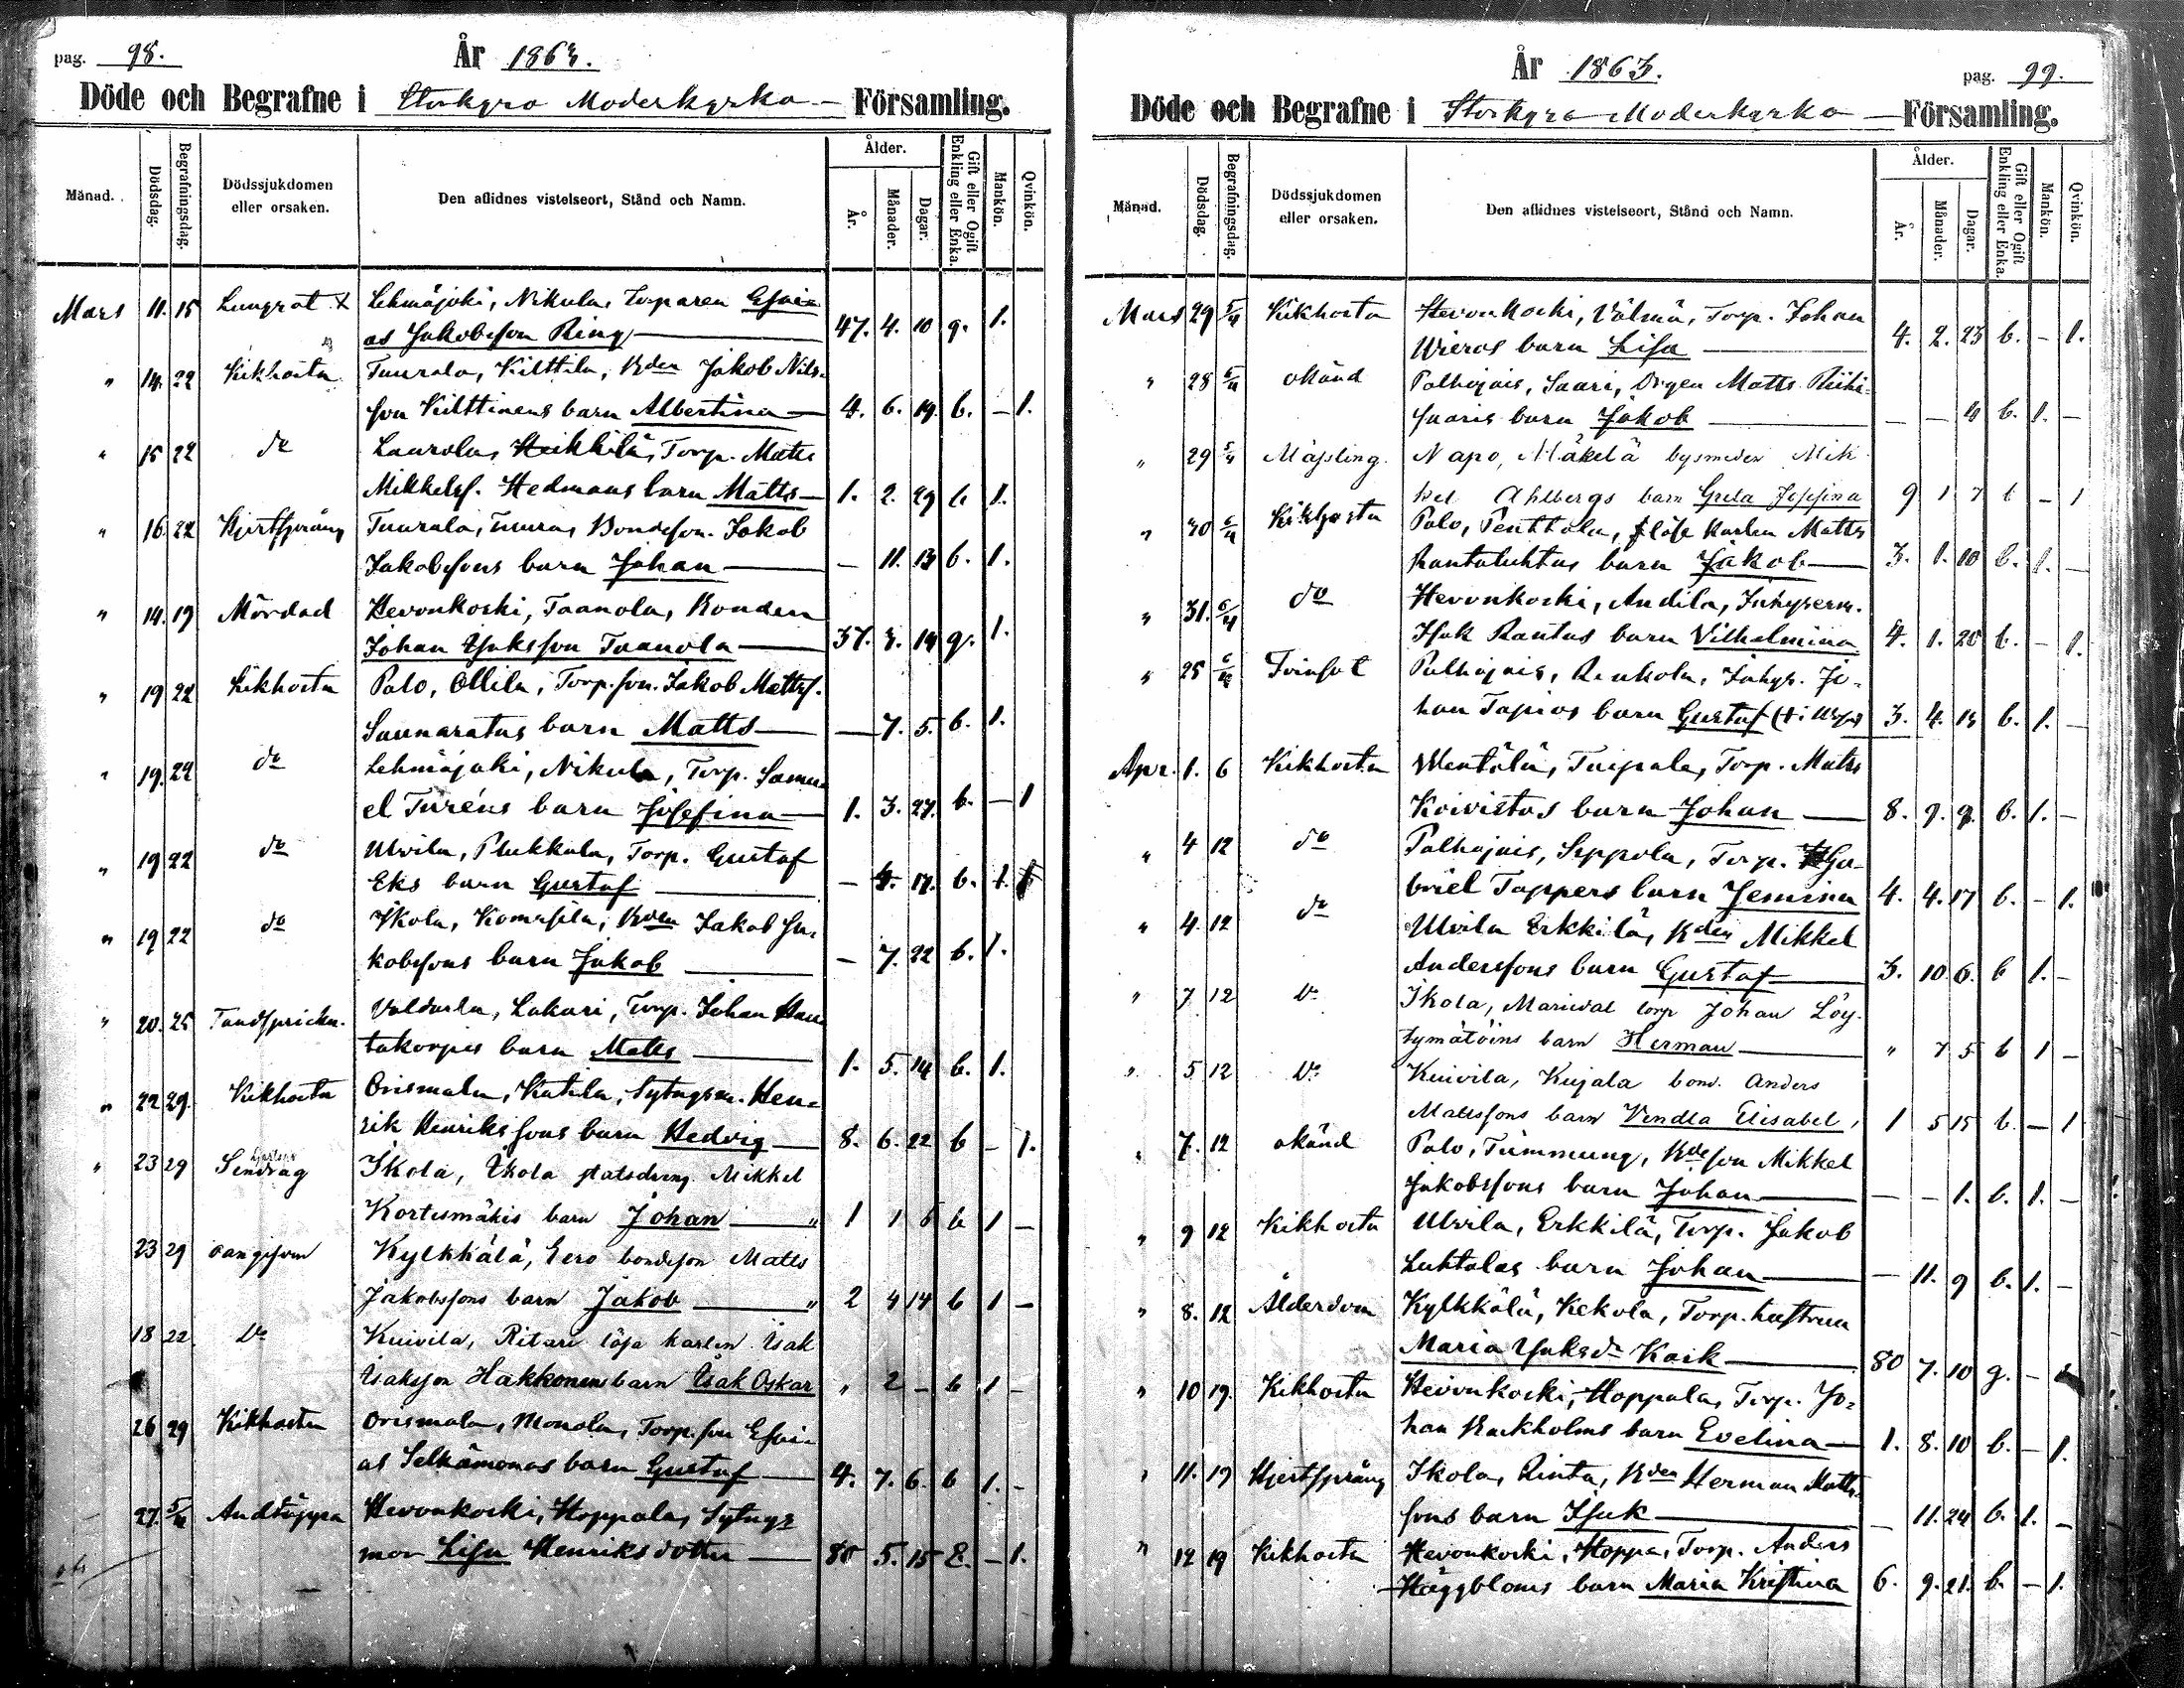 pag. 98. År 1863.
Döde och Begrafne i Storkyro Moderkyrko Församling.
Månad. Dödsdag. Begrafningsdag. Dödssjukdomen eller orsaken. Den aflidnes vistelseort, Stånd och Namn. Ålder. År. Månader. Dagar. Gift eller Ogift Enkling eller Enka. Mankön. Qvinkön.
Mars 11. 15 Lungsot Lehmäjoki, Nikula, Torparen Esai-
as Jakobsson Ring 47. 4. 10 g. 1.
" 14. 22 Kikhosta Tuurala, Kilttila, Bden Jakob Nils-
son Kilttinens barn Albertina 4. 6. 19. b. - 1.
" 15 22 do Laurola, Heikkilä, Torp. Matts
Mikkelss. Hedmans barn Matts 1. 2. 29 b 1.
" 16. 22 Hjertsprång Tuurala, Tuura, Bondeson. Jakob
Jakobssons barn Johan - 11. 13 b. 1.
" 14. 19 Mördad Hevonkoski, Taanola, Bonden
Johan Isaksson Taanola 37. 3. 14 g. 1.
" 19 22 Kikhosta Palo, Ollila, Torp.son. Jakob Mattss.
Saunaratas barn Matts - 7. 5. b. 1.
" 19. 22 do Lehmäjoki, Nikula, Torp. Samu-
el Turéns barn Josefina 1. 3. 27. b. - 1
" 19 22 do Ulvila, Pukkala, Torp. Gustaf
Eks barn Gustaf - 4. 17. b. 1.
" 19 22 do Ikola, Komsila, Bden Jakob Ja-
kobssons barn Jakob - 7. 22 b. 1.
" 20. 25 Tandsprickn. Valdarla, Lakari, Torp. Johan Hau-
takorpis barn Matts 1. 5. 14 b. 1.
" 22 29. Kikhosta Orismala, Katila, Sytngsm. Hen-
rik Henrikssons barn Hedvig 8. 6. 22 b - 1.
" 23 29 Sendrag Ikola, Ikola statsdreng Mikkel
Kortesmäkis barn Johan 1 1 5 b 1 -
23 29 Kylkkälä, Eero bondeson Matts
Jakobssons barn Jakob 2 4 14 b 1 -
18 22. Do Kuivila, Ritari löse karlen Isak
Isaksson Hakkonens barn Isak Oskar " 2 - b 1 -
26 29 Kikhosta Orismala, Monola, Torp.son Esai-
as Selkämonas barn Gustaf 4. 7. 6. b 1. -
27. 5/4 Andtäppa Hevonkoski, Hoppala, Sytngs
mor Lisa Henriksdotter 80 5. 15 E. - 1.
År 1863. pag. 99.
Döde och Begrafne i Storkyro Moderkyrko Församling.
Månad. Dödsdag. Begrafningsdag. Dödssjukdomen eller orsaken. Den aflidnes vistelseort, Stånd och Namn. Ålder. År. Månader. Dagar. Gift eller Ogift Enkling eller Enka. Mankön. Qvinkön.
Mars 29 5/4 Kikhosta Hevonkoski, Välmä, Torp. Johan
Wieros barn Lisa 4. 2. 23 b. - 1.
" 28 5/4 okänd Palhojais, Saari, Drgen Matts Riihi-
saaris barn Jakob - - 4 b. 1. -
" 29 5/4 Mäsling. Napo, Mäkelä bysmeden Mik
kel Ahlbergs barn Greta Josefina 9 1 7 b - 1
" 30 6/4 Kikhosta Palo, Penttola, Löse karlen Matts
Rantaluhtas barn Jakob 3. 1. 10 b. 1. -
" 31. 6/4 do Hevonkoski, Andila, Inhysesm.
Isak Rantas barn Vilhelmina 4. 1. 20 b. - 1.
" 25 6/4 Tvinsot Palhojais, Renkola, Inhys. Jo-
han Tapios barn Gustaf 3. 4. 13 b. 1. -
Apr. 1. 6 Kikhosta Wentälä, Taipala, Torp. Matts
Koivistos barn Johan 8. 9. 9. b. 1. -
" 4 12 do Palhojais, Seppola, Torp. Ga-
briel Tappers barn Jemina 4. 4. 17 b. - 1.
" 4. 12 do Ulvila Erkkilä, Bden Mikkel
Anderssons barn Gustaf 3. 10. 6. b 1. -
" 7 12 Do Ikola, Marieval torp Johan Löy-
tymätöins barn Herman " 7 5 b 1 -
" 5 12 Do Kuivila, Kujala bond. Anders
Mattssons barn Vendla Elisabet 1 5 15 b - 1
" 7. 12 okänd Palo, Timmung, Bdeson Mikkel
Jakobssons barn Johan - - 1. b. 1. -
" 9 12 Kikhosta Ulvila, Erkkilä, Torp. Jakob
Luhtalas barn Johan - 11. 9 b. 1. -
" 8. 12 Ålderdom Kylkkälä, Kekola, Torp.hustrun
Maria Isaksdr Kaik 80 7. 10 g. -
" 10 19. Kikhosta Hevonkoski, Hoppala, Torp. Jo-
han Backholms barn Evelina 1. 8. 10 b. - 1.
" 11. 19 Hjertsprång Ikola, Rinta, Bden Herman Matts-
sons barn Isak - 11. 24 b. 1. -
" 12 19 Kikhosta Hevonkoski, Hoppa, Torp. Anders
Häggbloms barn Maria Kristina 6. 9. 21. b. - 1.